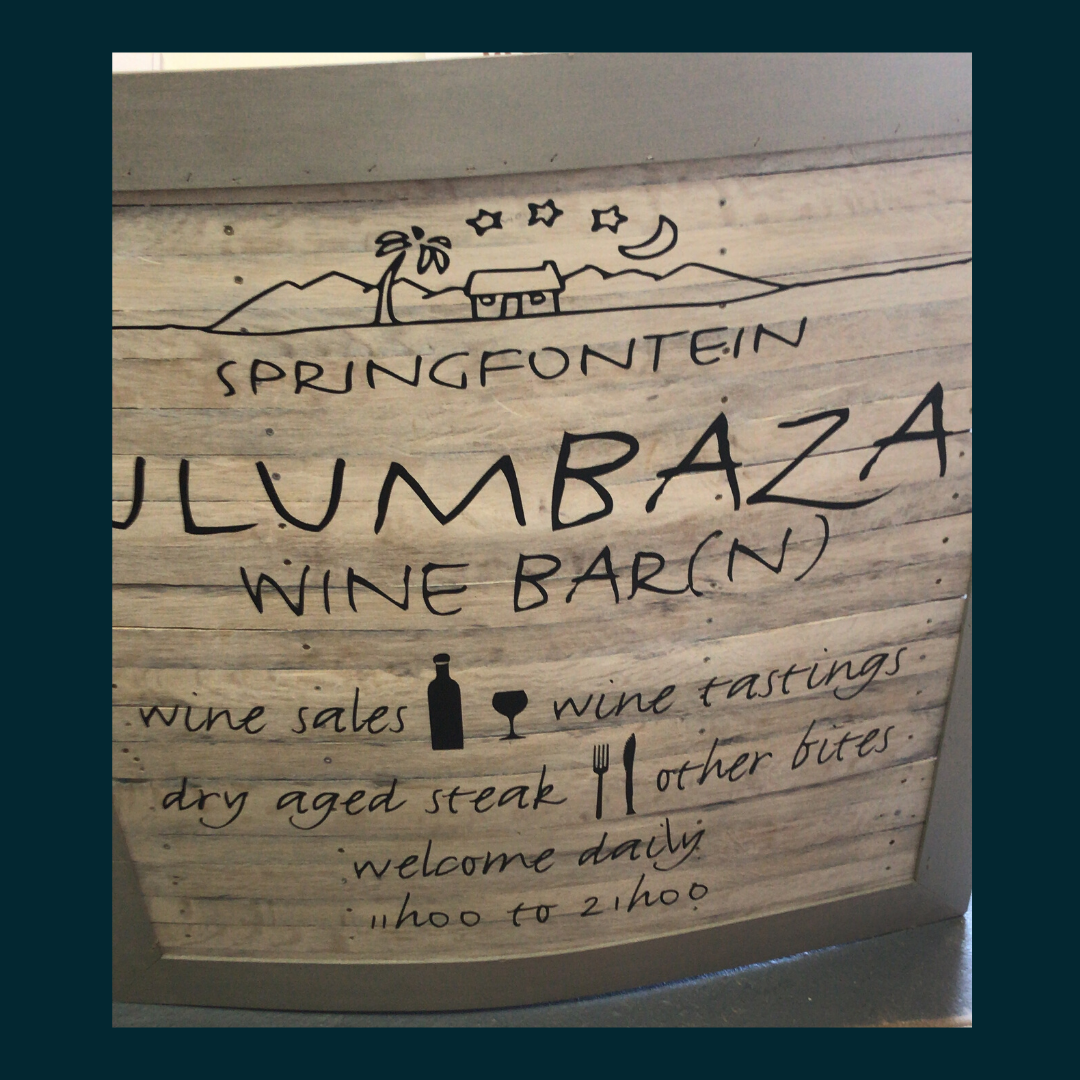 SPRINGFONTEIN
ULUMBAZA
WINE BAR(N)
wine sales wine tastings
dry aged steak other bites
welcome daily
11h00 to 21h00